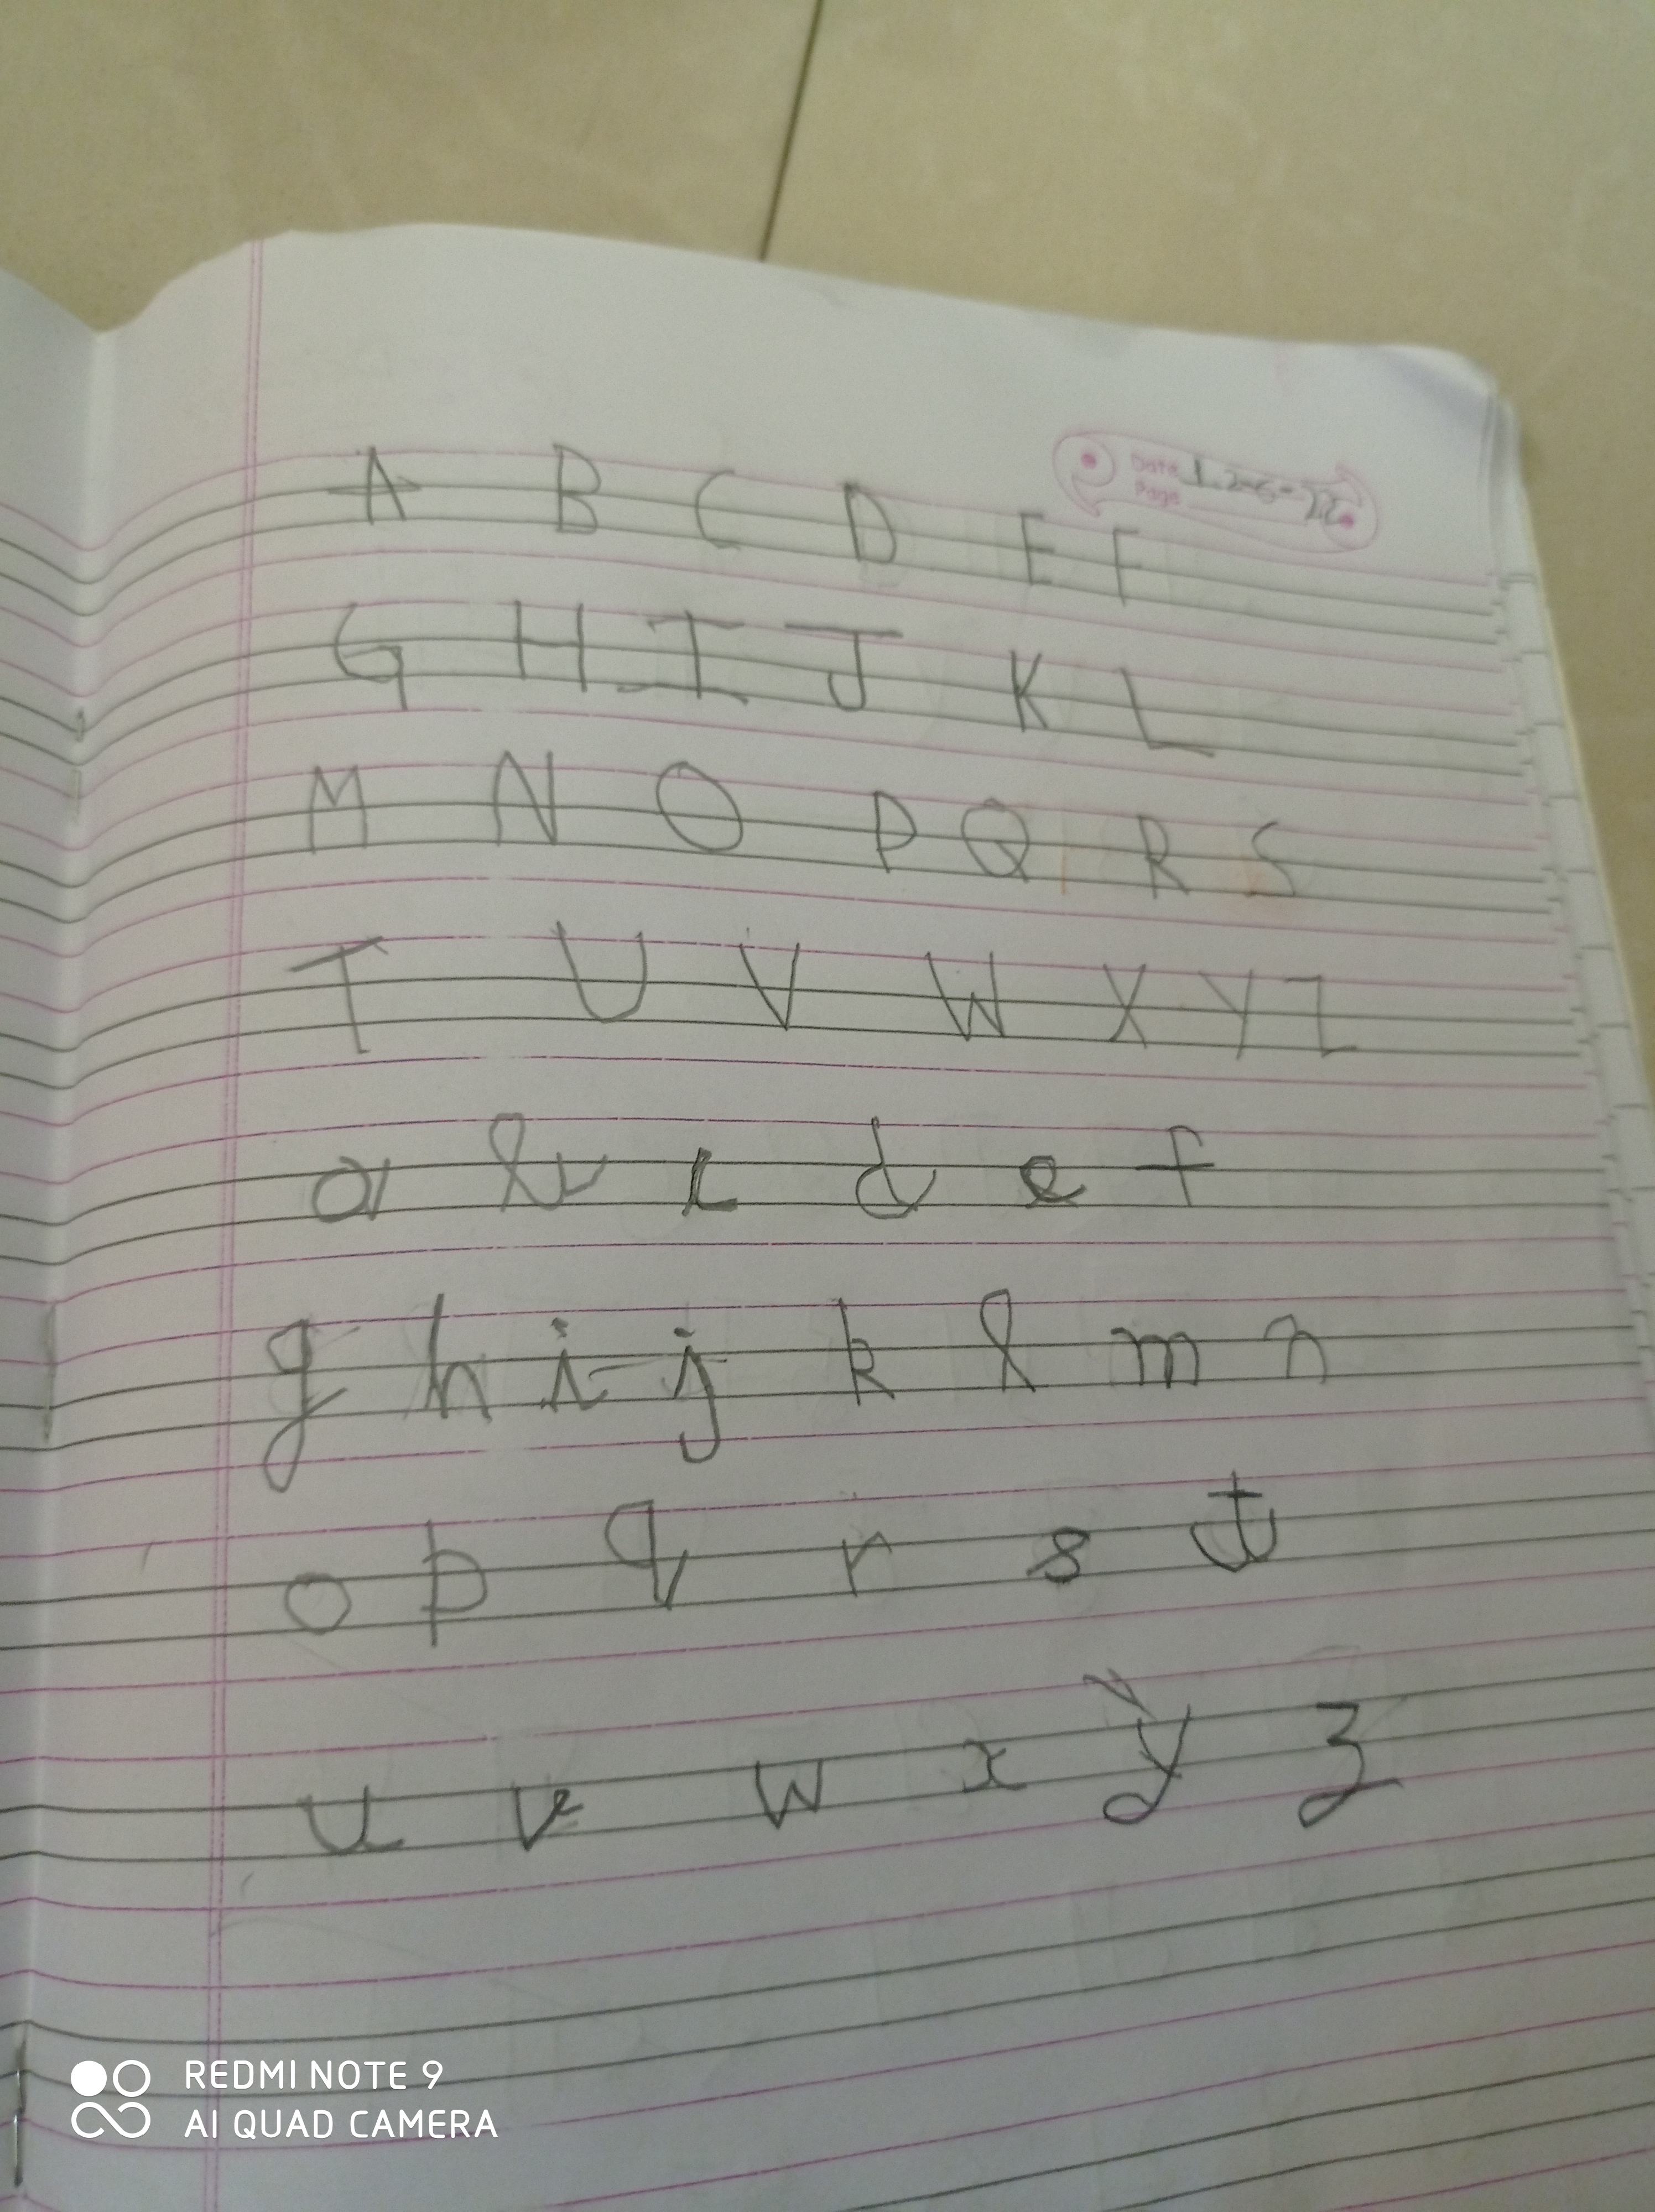 Date 1.2-6-22
Page
A B C D E F
G H I J K L
M N O P Q R S
T U V W X Y Z
a b c d e f
g h i j k l m n
o p q r s t
u v w x y z
REDMI NOTE 9
AI QUAD CAMERA